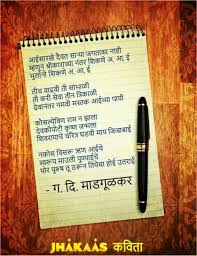 आईसारखे दैवत साऱ्या जगतावर नाही
म्हणून श्रीकाराच्या नंतर शिकणे अ, आ, ई
मुलांनो शिकणे अ, आ, ई
तीच वाढवी ती सांभाळी
ती करी सेवा तीन त्रिकाळी
देवानंतर नमवी मस्तक आईच्या पायी
कौसल्येविण राम न झाला
देवकीपोटी कृष्ण जन्मला
शिवरायांचे चरित्र घडवी माय जिजाबाई
नकोस विसरू ऋण आईचे
स्वरूप माउली पुण्याईचे
थोर पुरुष तू ठरून तियेचा होई उतराई
- ग. दि. माडगूळकर
JHAKAAS कविता